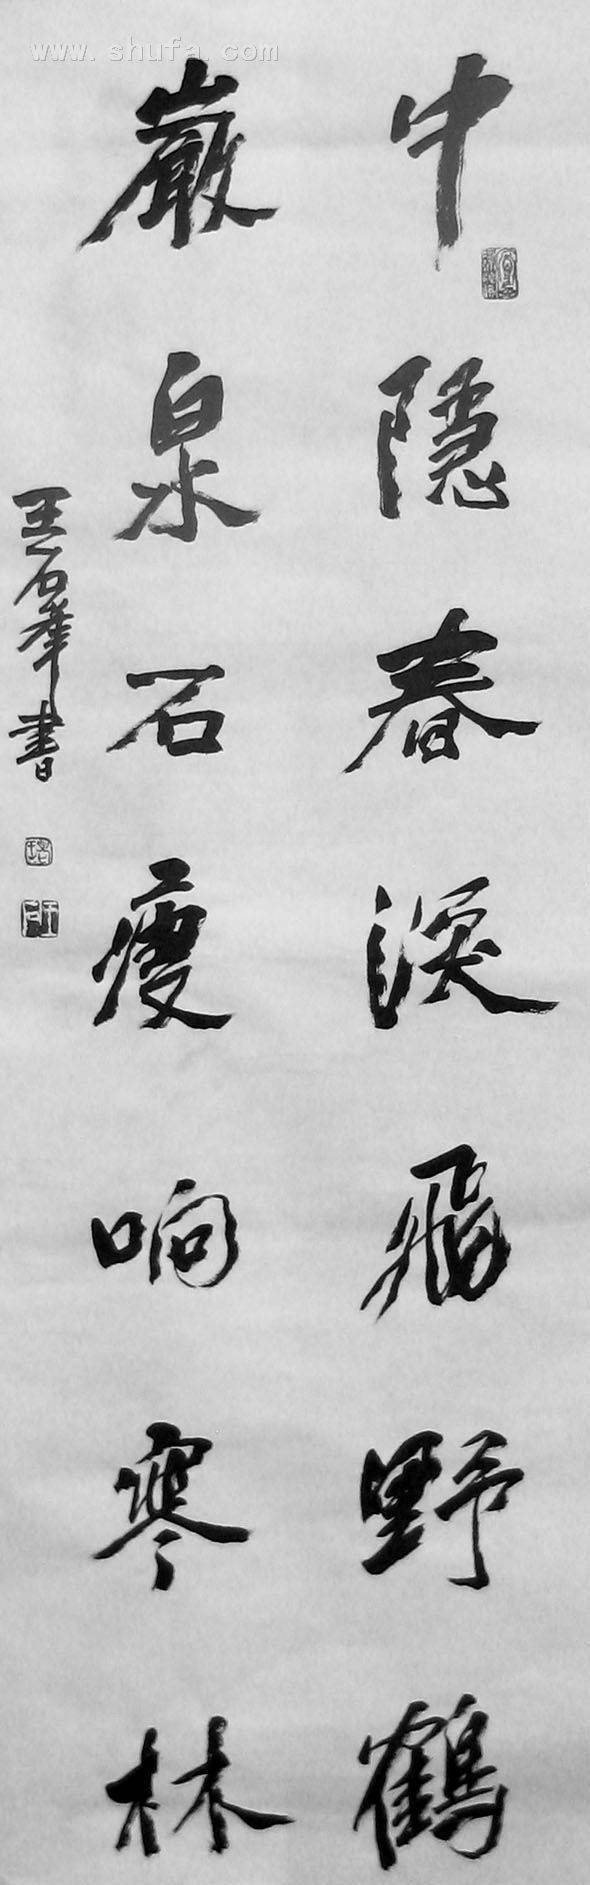 www.shufa.com
中隐春深飛野鶴
巖泉石瘦响寒林
王石峰書